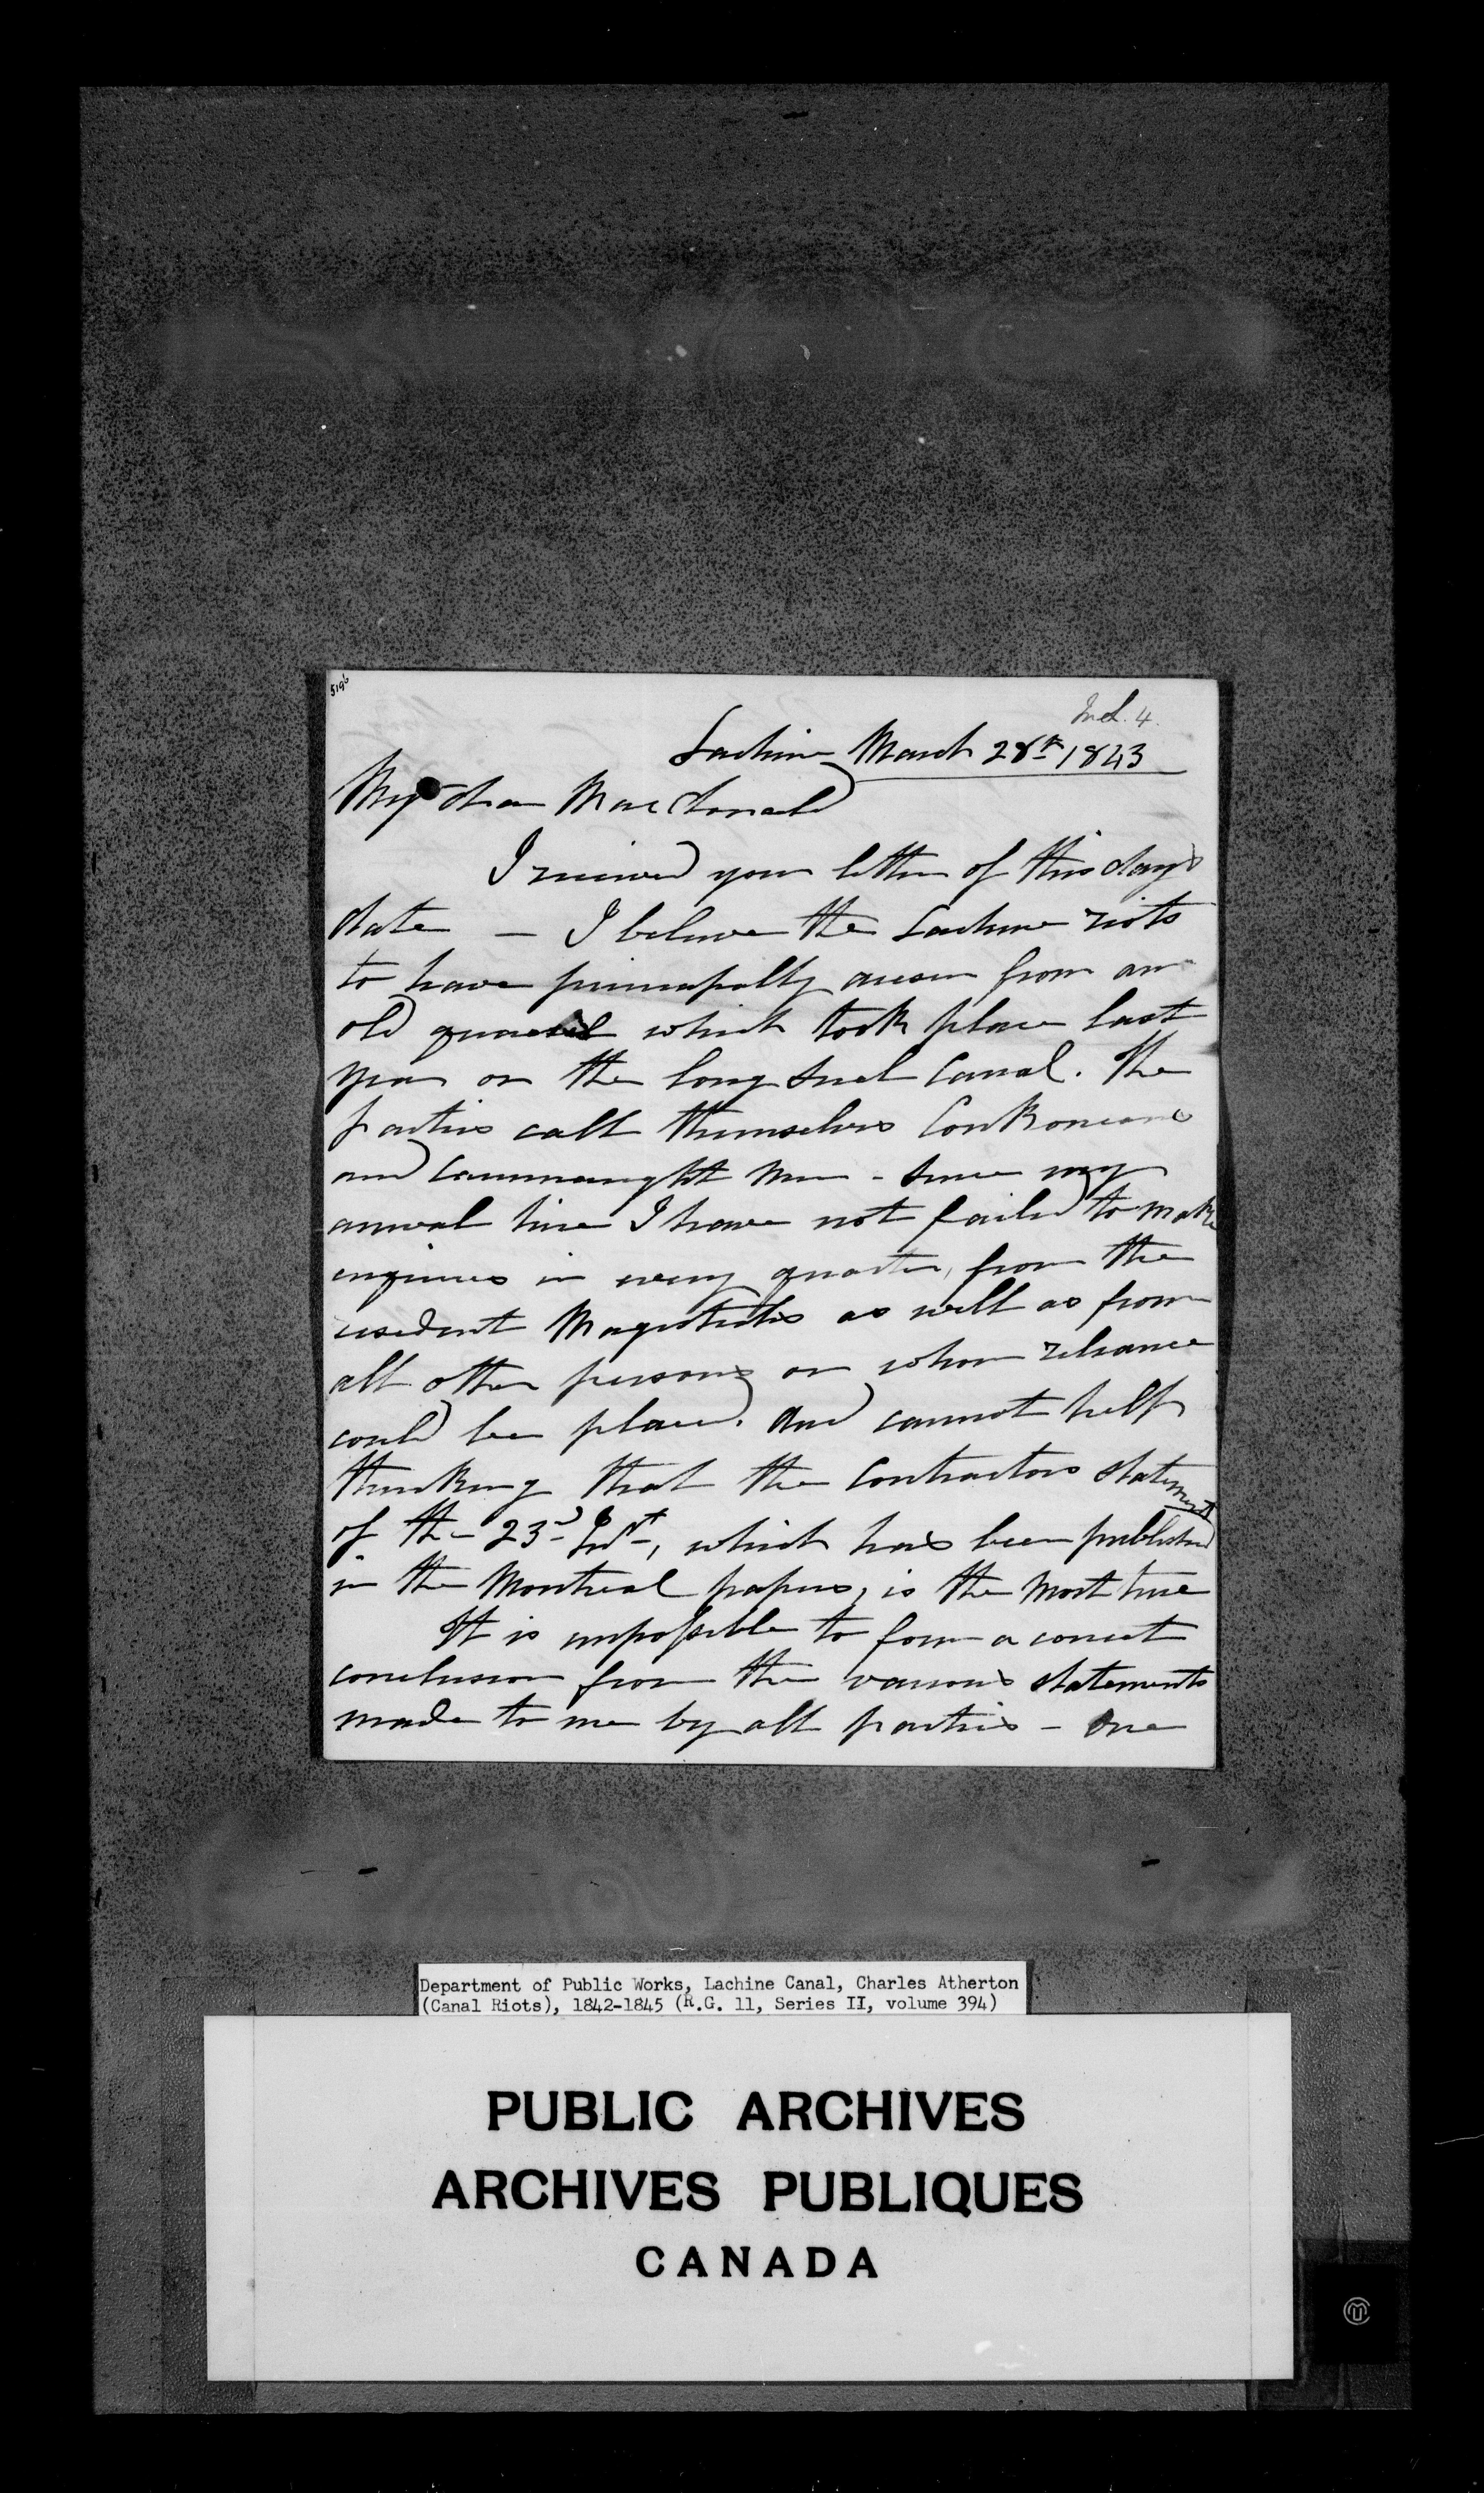 5196
Incl. 4.
Lachine March 28th 1843
My dear MacDonald
I received your letter of this day's
date — I believe the Lachine riots
to have principally arisen from an
old quarrel which took place last
year on the long Suel Canal. The
parties call themselves Corkonians
and Caunnaught Men - Since my
arrival here I have not failed to make
enquiries in every quarter, from the
resident Magistrates as well as from
all other persons on whom reliance
could be placed. And cannot help
thinking that the Contractors statement
of the 23d Inst, which has been published
in the Montreal papers, is the most true
It is impossible to form a correct
conclusion from the various statements
made to me by all parties - One
Department of Public Works, Lachine Canal, Charles Atherton
(Canal Riots), 1842-1845 (R.G. 11, Series II, volume 394)
PUBLIC ARCHIVES
ARCHIVES PUBLIQUES
CANADA